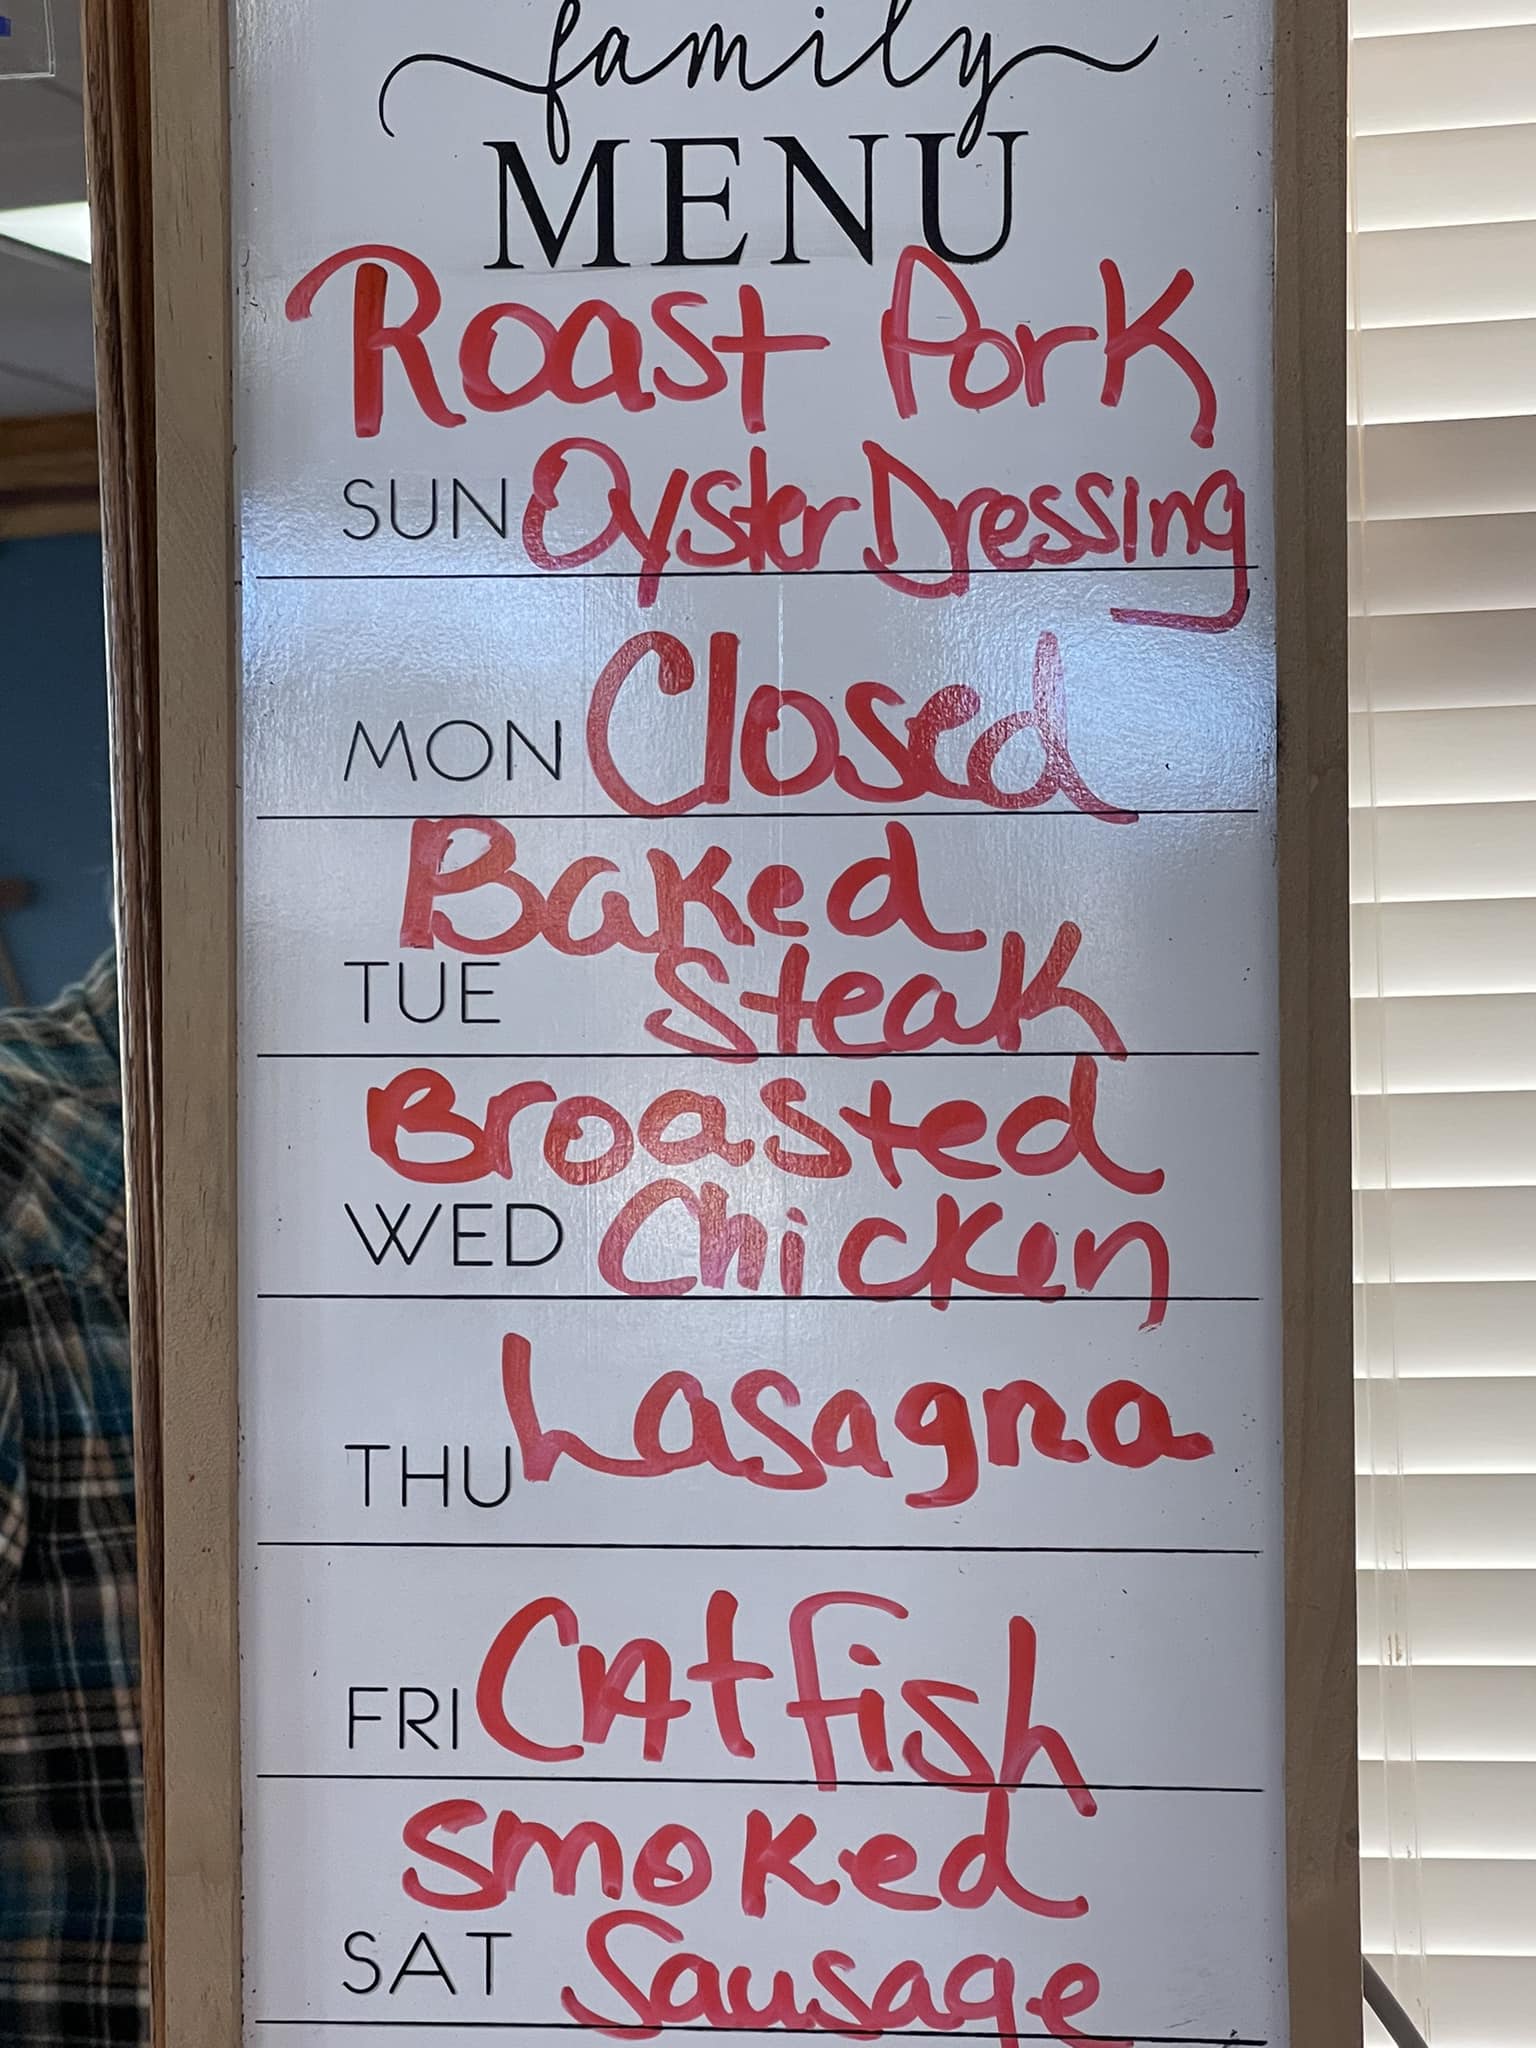 family
MENU
Roast Pork
SUN Oyster Dressing
MON Closed
Baked
TUE Steak
Broasted
WED Chicken
THU Lasagna
FRI CAtfish
Smoked
SAT Sausage